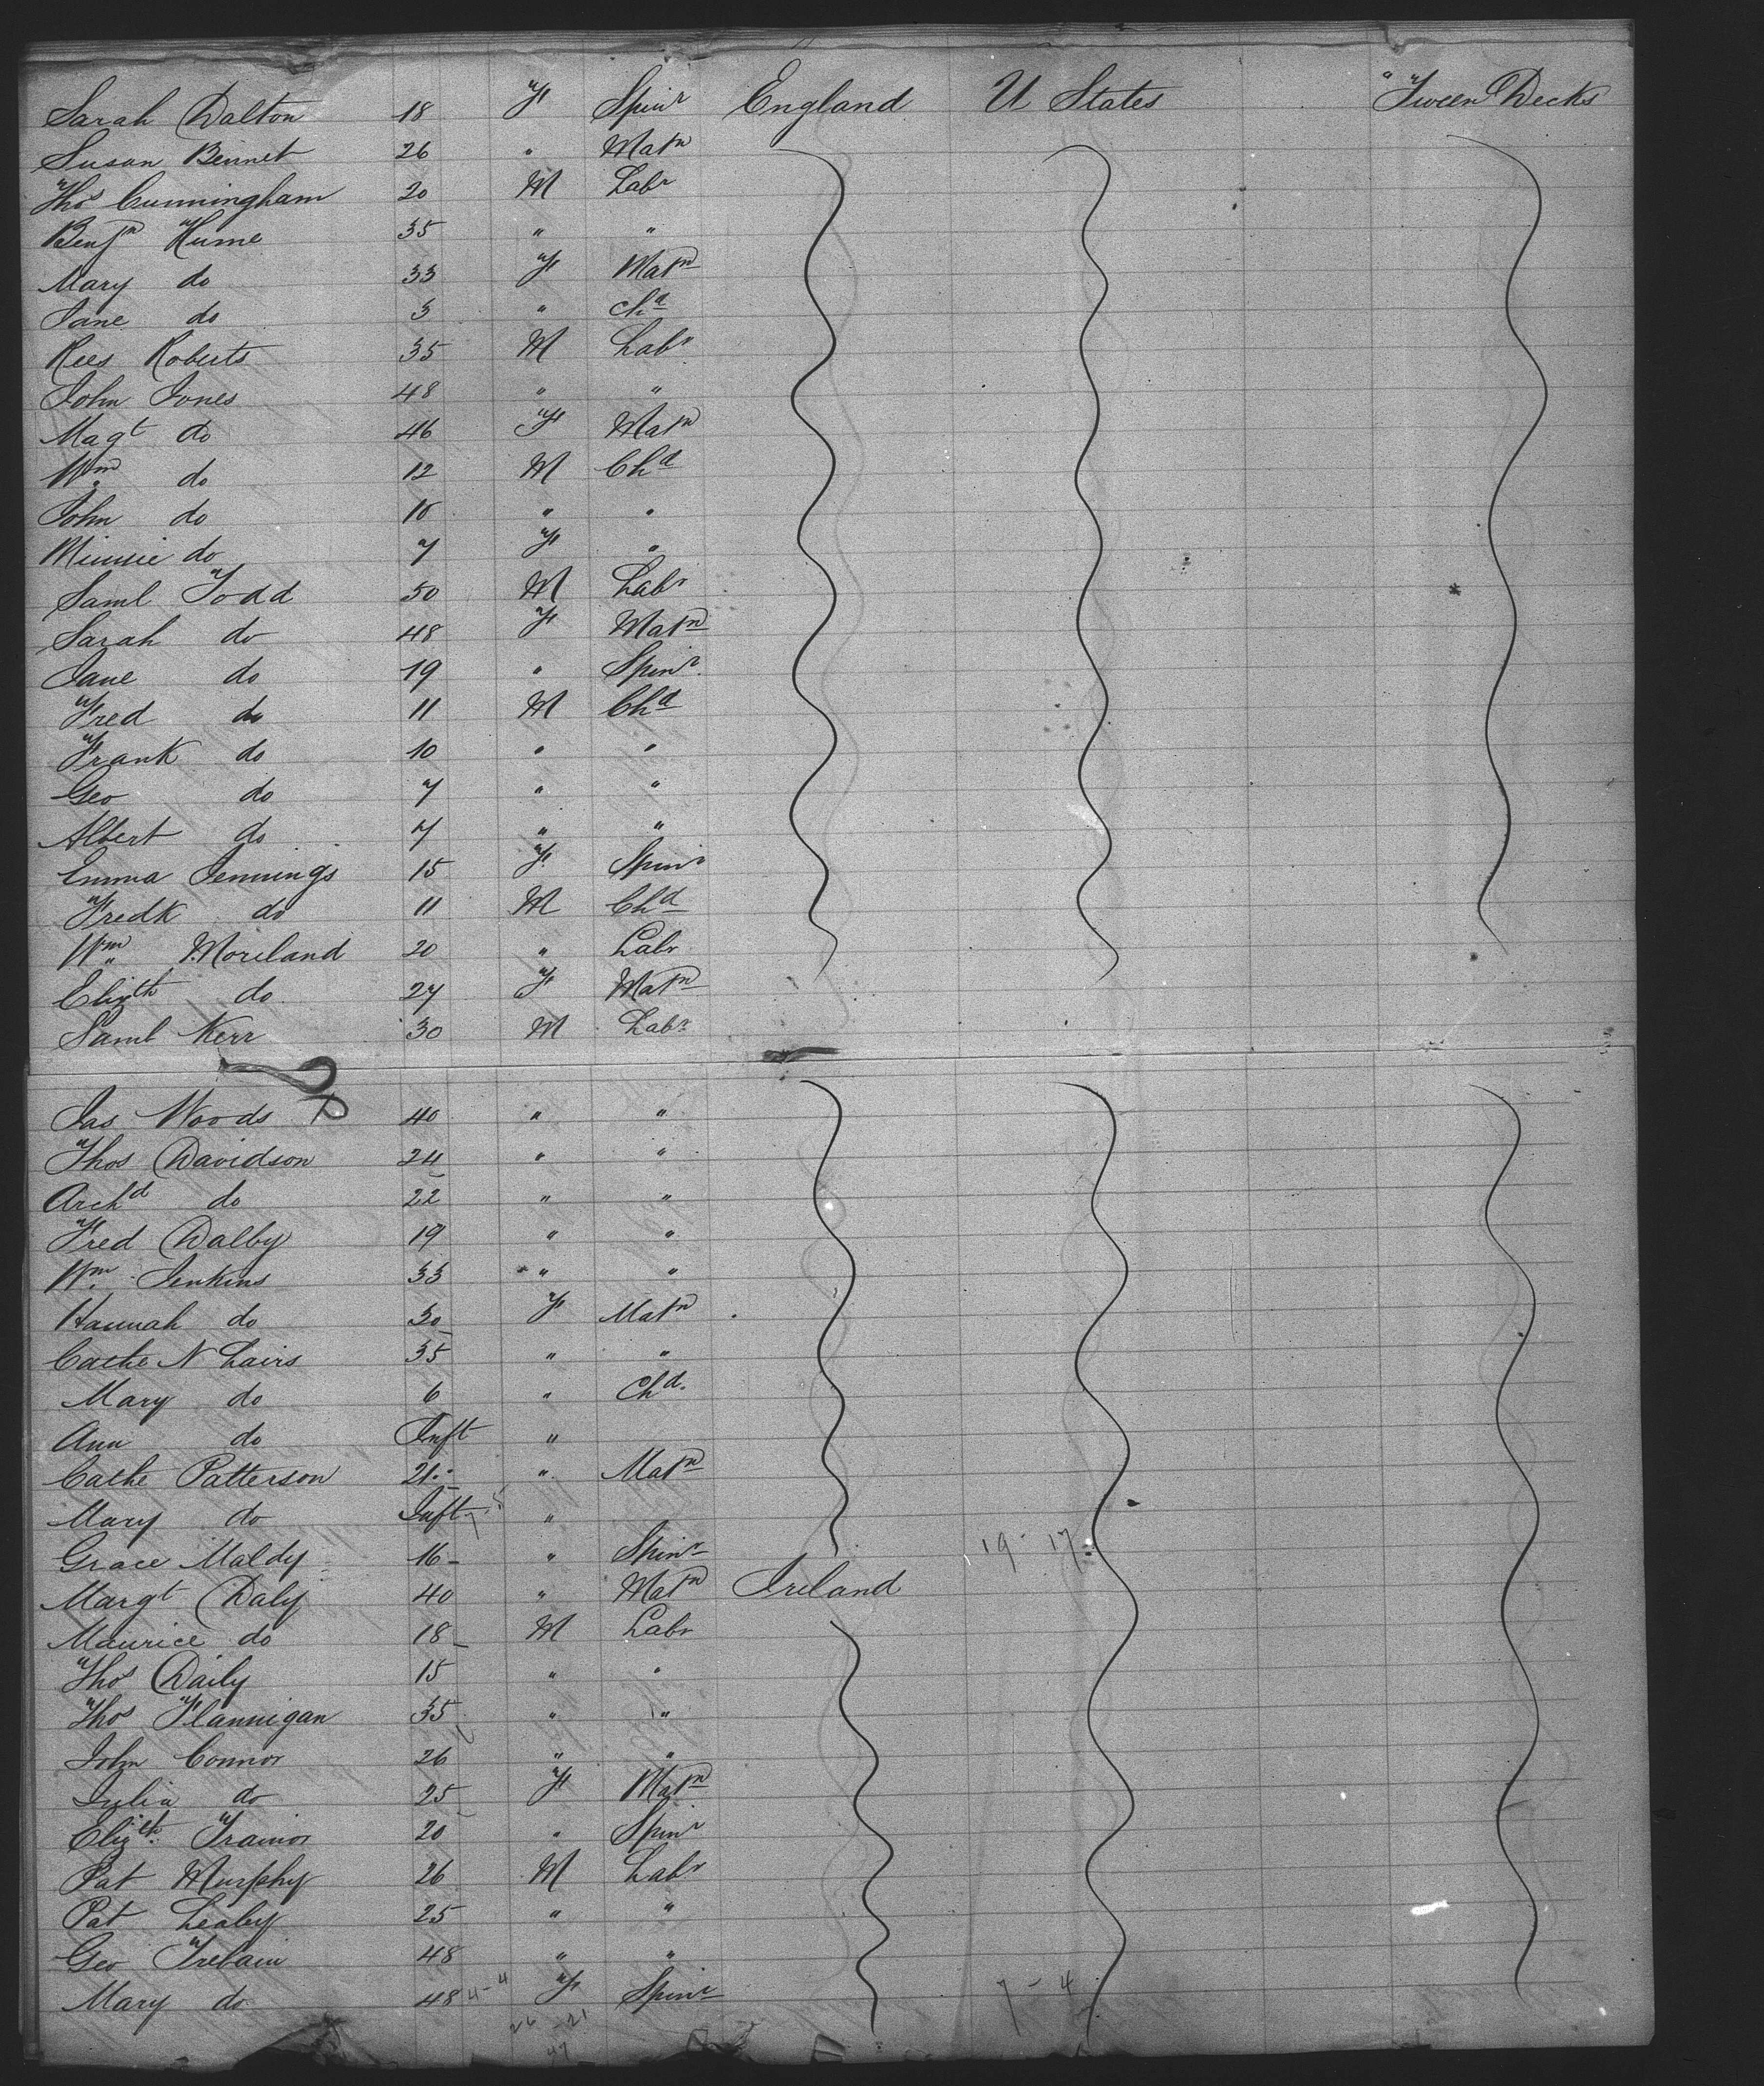 Sarah Dalton 18 F Spinr England U States 'Tween Decks
Susan Bennet 26 " Matn
Thos Cunningham 20 M Labr
Benjn Hume 35 " "
Mary do 33 F Matn
Jane do 3 " Chd
Rees Roberts 35 M Labr
John Jones 48 " "
Magt do 46 F Matn
Wm do 12 M Chd
John do 10 " "
Minnie do 7 F "
Saml Todd 50 M Labr
Sarah do 48 F Matn
Jane do 19 " Spinr
Fred do 11 M Chd
Frank do 10 " "
Geo do 7 " "
Albert do 7 " "
Emma Jennings 15 F Spinr
Fredk do 11 M Chd
Wm Moreland 20 " Labr
Elizth do 27 F Matn
Saml Kerr 30 M Labr
Jas Woods 40 " "
Thos Davidson 24 " "
Archd do 22 " "
Fred Dalby 19 " "
Wm Jenkins 33 " "
Hannah do 30 F Matn
Cathe N Lairs 35 " "
Mary do 6 " Chd
Ann do Inft "
Cathe Patterson 21 " Matn
Mary do Inft "
Grace Maldy 16 " Spinr 19-17
Margt Daly 40 " Matn Ireland
Maurice do 18 M Labr
Thos Daily 15 " "
Thos Flannigan 35 " "
John Connor 26 " "
Julia do 25 F Matn
Elizth Trainor 20 " Spinr
Pat Murphy 26 M Labr
Pat Leahy 25 " "
Geo Trebain 48 " "
Mary do 48 4-4 F Spinr 7-4
26-21
47